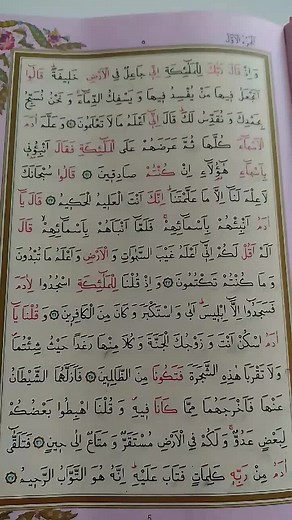 الجزء الأول
٥
وَاِذْ قَالَ رَبُّكَ لِلْمَلٰٓئِكَةِ اِنّ۪ي جَاعِلٌ فِي الْاَرْضِ خَل۪يفَةًۜ قَالُٓوا
اَتَجْعَلُ ف۪يهَا مَنْ يُفْسِدُ ف۪يهَا وَيَسْفِكُ الدِّمَٓاءَۚ وَنَحْنُ نُسَبِّحُ
بِحَمْدِكَ وَنُقَدِّسُ لَكَۜ قَالَ اِنّ۪ٓي اَعْلَمُ مَا لَا تَعْلَمُونَ ۝ وَعَلَّمَ اٰدَمَ
الْاَسْمَٓاءَ كُلَّهَا ثُمَّ عَرَضَهُمْ عَلَى الْمَلٰٓئِكَةِ فَقَالَ اَنْبِؤُ۫ن۪ي
بِاَسْمَٓاءِ هٰٓؤُ۬لَٓاءِ اِنْ كُنْتُمْ صَادِق۪ينَ ۝ قَالُوا سُبْحَانَكَ
لَا عِلْمَ لَنَٓا اِلَّا مَا عَلَّمْتَنَاۜ اِنَّكَ اَنْتَ الْعَل۪يمُ الْحَك۪يمُ ۝ قَالَ يَٓا
اٰدَمُ اَنْبِئْهُمْ بِاَسْمَٓائِهِمْۚ فَلَمَّٓا اَنْبَاَهُمْ بِاَسْمَٓائِهِمْۙ قَالَ
اَلَمْ اَقُلْ لَكُمْ اِنّ۪ٓي اَعْلَمُ غَيْبَ السَّمٰوَاتِ وَالْاَرْضِۙ وَاَعْلَمُ مَا تُبْدُونَ
وَمَا كُنْتُمْ تَكْتُمُونَ ۝ وَاِذْ قُلْنَا لِلْمَلٰٓئِكَةِ اسْجُدُوا لِاٰدَمَ
فَسَجَدُٓوا اِلَّٓا اِبْل۪يسَۜ اَبٰى وَاسْتَكْبَرَ وَكَانَ مِنَ الْكَافِر۪ينَ ۝ وَقُلْنَا يَٓا
اٰدَمُ اسْكُنْ اَنْتَ وَزَوْجُكَ الْجَنَّةَ وَكُلَا مِنْهَا رَغَدًا حَيْثُ شِئْتُمَاۖ
وَلَا تَقْرَبَا هٰذِهِ الشَّجَرَةَ فَتَكُونَا مِنَ الظَّالِم۪ينَ ۝ فَاَزَلَّهُمَا الشَّيْطَانُ
عَنْهَا فَاَخْرَجَهُمَا مِمَّا كَانَا ف۪يهِۖ وَقُلْنَا اهْبِطُوا بَعْضُكُمْ
لِبَعْضٍ عَدُوٌّۚ وَلَكُمْ فِي الْاَرْضِ مُسْتَقَرٌّ وَمَتَاعٌ اِلٰى ح۪ينٍ ۝ فَتَلَقّٰٓى
اٰدَمُ مِنْ رَبِّه۪ كَلِمَاتٍ فَتَابَ عَلَيْهِۜ اِنَّهُ هُوَ التَّوَّابُ الرَّح۪يمُ ۝
5